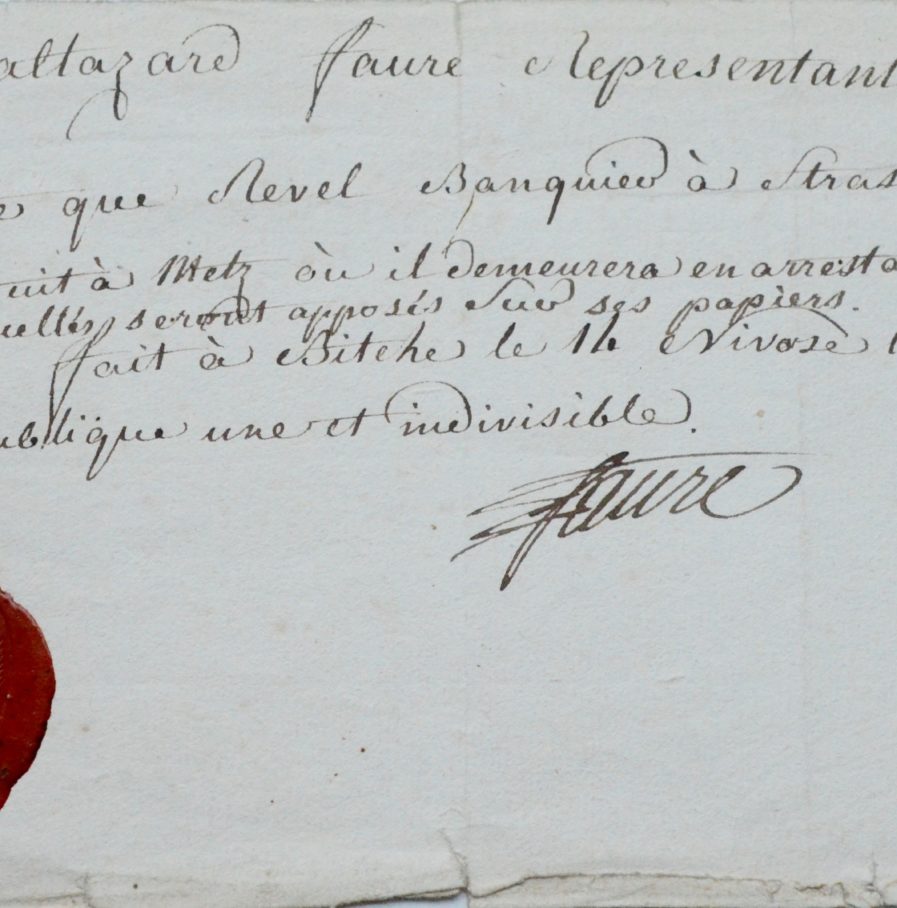 altazard faure Representant
que Revel Banquier à Stras
uit à Metz où il demeurera en arresta
ellés seront apposés sur ses papiers.
fait à Bitche le 14 Nivose
ublique une et indivisible.
faure